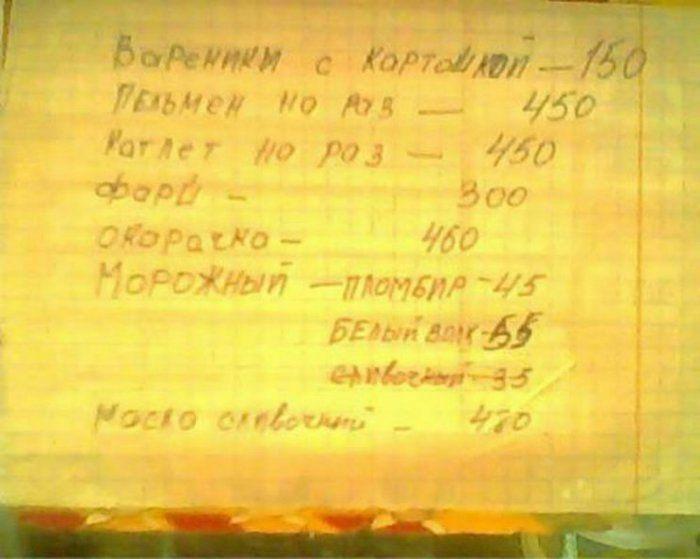 Вареники с картошкой — 150
Пельмен на раз — 450
Катлет на раз — 450
Фарш — 300
Окорачка — 460
Морожный — пломбир - 45
Белый волк - 55
сливочный - 35
Масло сливочний - 480